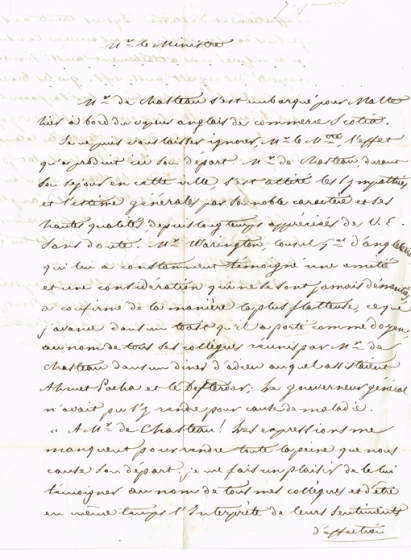 Mr le Ministre
Mr de Chasteau s'est embarqué pour Malte
hier à bord du vapeur anglais de commerce Scotia.
Je ne puis vous laisser ignorer, Mr le Mtre, l'effet
qu'a produit ici son départ. Mr de Chasteau, durant
son séjour en cette ville, s'est attiré les sympathies
et l'estime générales par son noble caractère et ses
hautes qualités, depuis longtemps appréciées de V. E.
sans doute. Mr Warington, consul gal d'angleterre
qui lui a constamment témoigné une amitié
et une considération qui ne se sont jamais démenties,
a confirmé de la manière la plus flatteuse, ce que
j'avance dans un toast qu'il a porté comme doyen,
au nom de tous ses collègues réunis par Mr de
Chasteau dans un diner d'adieu auquel assistaient
Ahmet Pacha et le Defterdar. Le gouverneur général
n'avait pu s'y rendre pour cause de maladie.
"A Mr de Chasteau! Les expressions me
manquent pour rendre toute la peine que nous
cause son départ, je me fais un plaisir de le lui
témoigner au nom de tous mes collègues et d'être
en même temps l'Interprète de leurs sentiments
d'affection